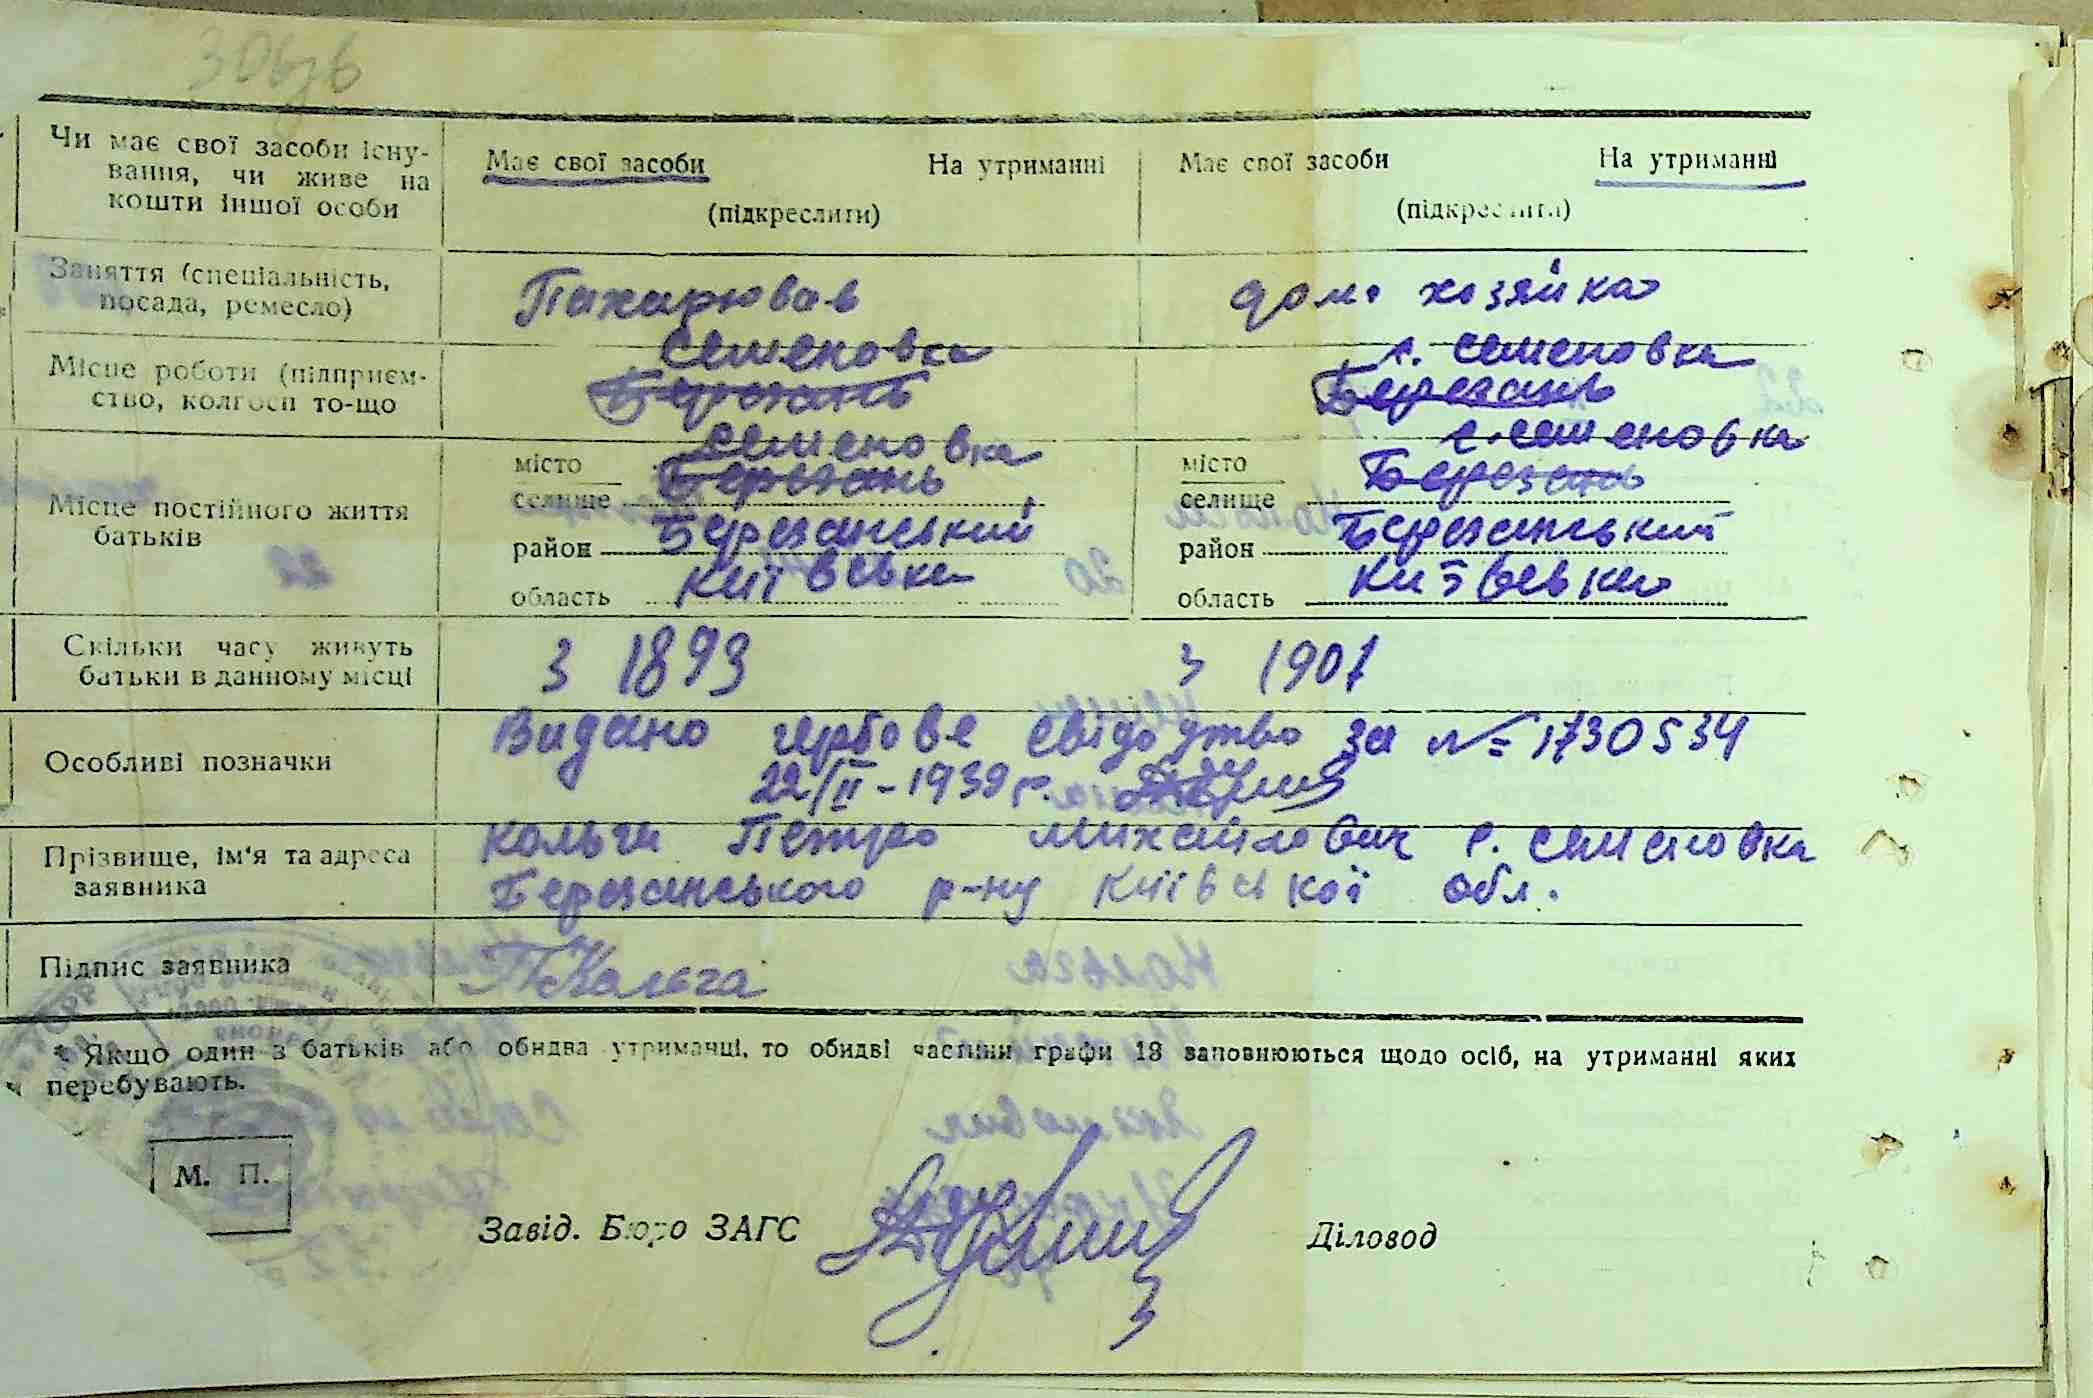 Чи має свої засоби існу-
вання, чи живе на
кошти іншої особи
Має свої засоби На утриманні
(підкреслити)
Має свої засоби На утриманні
(підкреслити)
Заняття (спеціальність,
посада, ремесло)
Пахарював
дом. хозяйка
Місце роботи (підприєм-
ство, колгосп то-що
Семеновка
Березань
с. Семеновка
Березань
Місце постійного життя
батьків
Семеновка
місто Березань
селище
район Березанський
область Київська
с. Семеновка
місто Березань
селище
район Березанський
область Київська
Скільки часу живуть
батьки в данному місці
З 1893
З 1901
Особливі позначки
Видано гербове свідодтво за № 1730534
22/II-1939 р.
Прізвище, ім'я та адреса
заявника
Кольги Петро Михайлович с. Семеновка
Березанського р-ну Київської обл.
Підпис заявника
П Кольга
* Якщо один з батьків або обидва утриманці, то обидві частини графи 18 заповнюються щодо осіб, на утриманні яких
перебувають.
М. П.
Завід. Бюро ЗАГС
Діловод